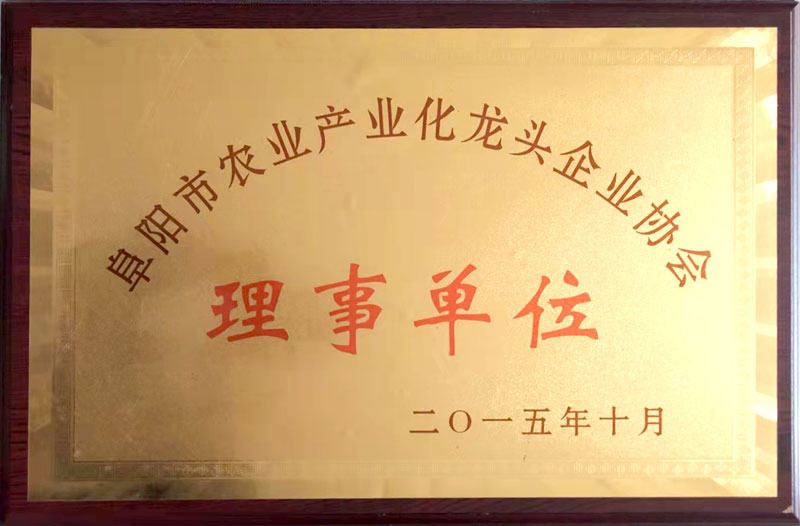 阜阳市农业产业化龙头企业协会
理事单位
二〇一五年十月